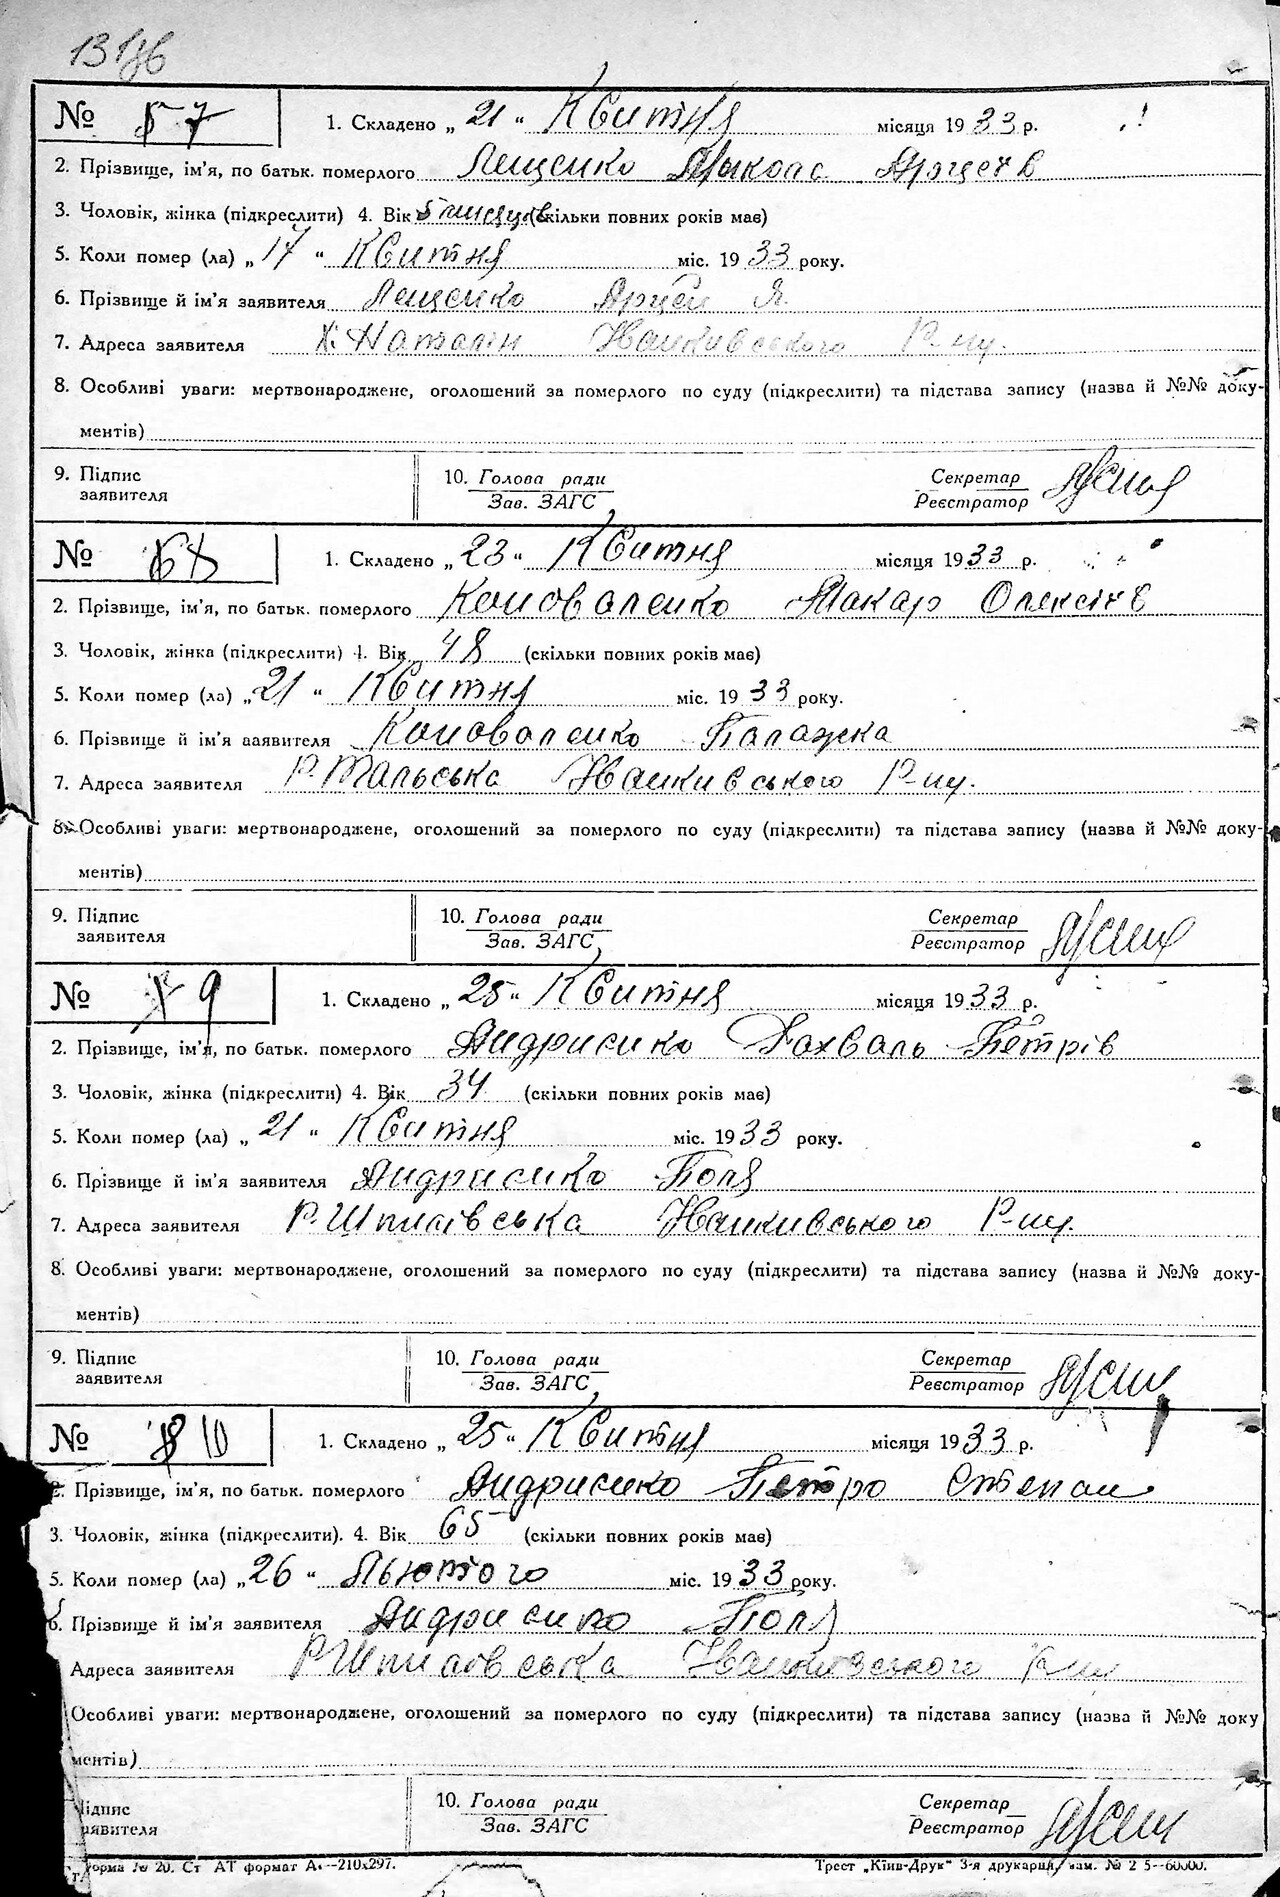 № 7
1. Складено „ 21 “ Квитня місяця 1933 р.
2. Прізвище, ім'я, по батьк. померлого Лещенко Микола
3. Чоловік, жінка (підкреслити) 4. Вік 5 мисяців (скільки повних років має)
5. Коли помер (ла) „ 17 “ Квитня міс. 1933 року.
6. Прізвище й ім'я заявителя Лещенко
7. Адреса заявителя х. Наталін Иванкивського Р-ну.
8. Особливі уваги: мертвонароджене, оголошений за померлого по суду (підкреслити) та підстава запису (назва й №№ доку-
ментів)
9. Підпис заявителя 10. Голова ради Зав. ЗАГС Секретар Реєстратор
№ 8
1. Складено „ 23 “ Квитня місяця 1933 р.
2. Прізвище, ім'я, по батьк. померлого Коноваленко Макар Олексіїв
3. Чоловік, жінка (підкреслити) 4. Вік 48 (скільки повних років має)
5. Коли помер (ла) „ 21 “ Квитня міс. 1933 року.
6. Прізвище й ім'я заявителя Коноваленко Палажка
7. Адреса заявителя Р. Мальська Иванкивського Р-ну.
8. Особливі уваги: мертвонароджене, оголошений за померлого по суду (підкреслити) та підстава запису (назва й №№ доку-
ментів)
9. Підпис заявителя 10. Голова ради Зав. ЗАГС Секретар Реєстратор
№ 9
1. Складено „ 25 “ Квитня місяця 1933 р.
2. Прізвище, ім'я, по батьк. померлого Андрисико Петрів
3. Чоловік, жінка (підкреслити) 4. Вік 34 (скільки повних років має)
5. Коли помер (ла) „ 21 “ Квитня міс. 1933 року.
6. Прізвище й ім'я заявителя Андрисико Поля
7. Адреса заявителя Р. Шпилівська Иванкивського Р-ну.
8. Особливі уваги: мертвонароджене, оголошений за померлого по суду (підкреслити) та підстава запису (назва й №№ доку-
ментів)
9. Підпис заявителя 10. Голова ради Зав. ЗАГС Секретар Реєстратор
№ 10
1. Складено „ 25 “ Квитня місяця 1933 р.
2. Прізвище, ім'я, по батьк. померлого Андрисико Петро Степан
3. Чоловік, жінка (підкреслити). 4. Вік 65 (скільки повних років має)
5. Коли помер (ла) „ 26 “ Лютого міс. 1933 року.
6. Прізвище й ім'я заявителя Андрисико Поля
Адреса заявителя Р. Шпилівська Иванкивського Р-ну
Особливі уваги: мертвонароджене, оголошений за померлого по суду (підкреслити) та підстава запису (назва й №№ доку
ментів)
ідпис явителя 10. Голова ради Зав. ЗАГС Секретар Реєстратор
орма № 20. Ст АТ формат А₄—210х297. Трест „Київ-Друк“ 3-я друкарня, зам. № 2 5—60000.